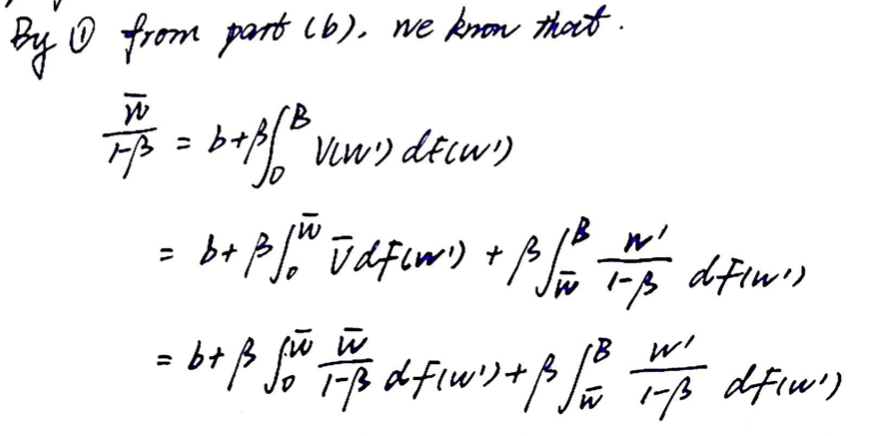 By ① from part (b), we know that.
\frac{\bar{w}}{1-β} = b+β∫_0^B V(w') dF(w')
= b+ β∫_0^{\bar{w}} \bar{U} dF(w') + β∫_{\bar{w}}^B \frac{w'}{1-β} dF(w')
= b+ β ∫_0^{\bar{w}} \frac{\bar{w}}{1-β} dF(w') + β ∫_{\bar{w}}^B \frac{w'}{1-β} dF(w')